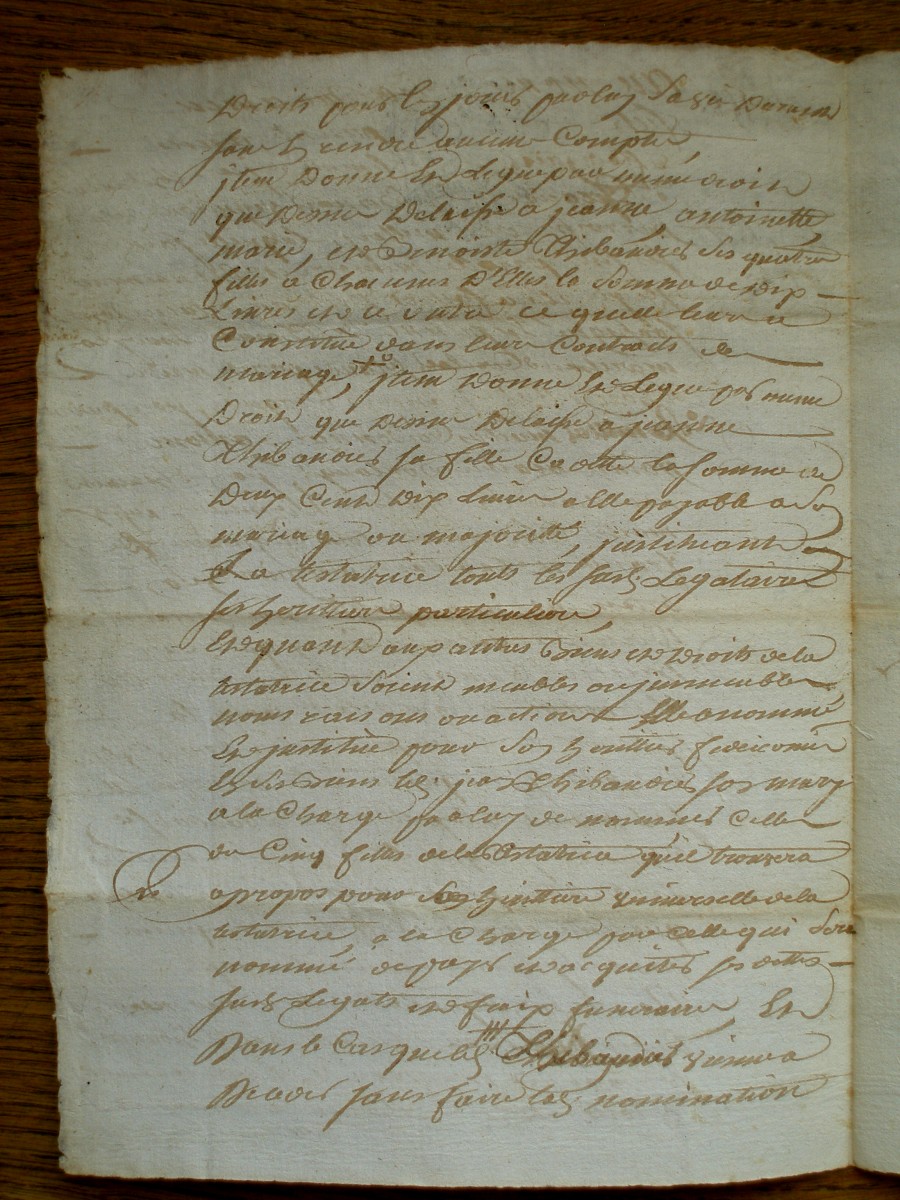 Droits pour les jouir par luy sa vie Durant
sans rendre aucun Compte,
jtem Donne et Legue par meme droit
que Dessus Delaisse a jeanne, antoinette,
marie, et Benoiste Thibaudier ses quatre
filles a Chacunes D'Elles la somme de Dix
Livres et ce outre ce quelle leur a
Constitué dans leur Contracts de
mariage, jtem Donne et Legue par meme
Droit que Dessus Delaisse a jeanne
Thibaudier sa fille Cadette la somme de
Deux Cent Dix Livres a elle payable a son
mariage ou majorité, justituant
La testatrice touts les susd Legataires
ses heritiers particuliers,
Et quant aux autres Biens et Droits de la
testatrice Soient meubles ou jmmeubles
noms raisons ou actions Elle a nommé
et justitué pour son heritier fideicomis
led jean Thibaudier son mary
a la Charge par luy de nommer Celle
de Cinq filles de la testatrice qu'il trouvera
apropos pour son heritiere universelle de la
testatrice, a la Charge par Celle qui Sera
nommé de payer et acquiter ses dettes
susd Legats et fraix funeraires, Et
Dans le Cas que led Thibaudier vienne a
Deceder sans faire lad nomination